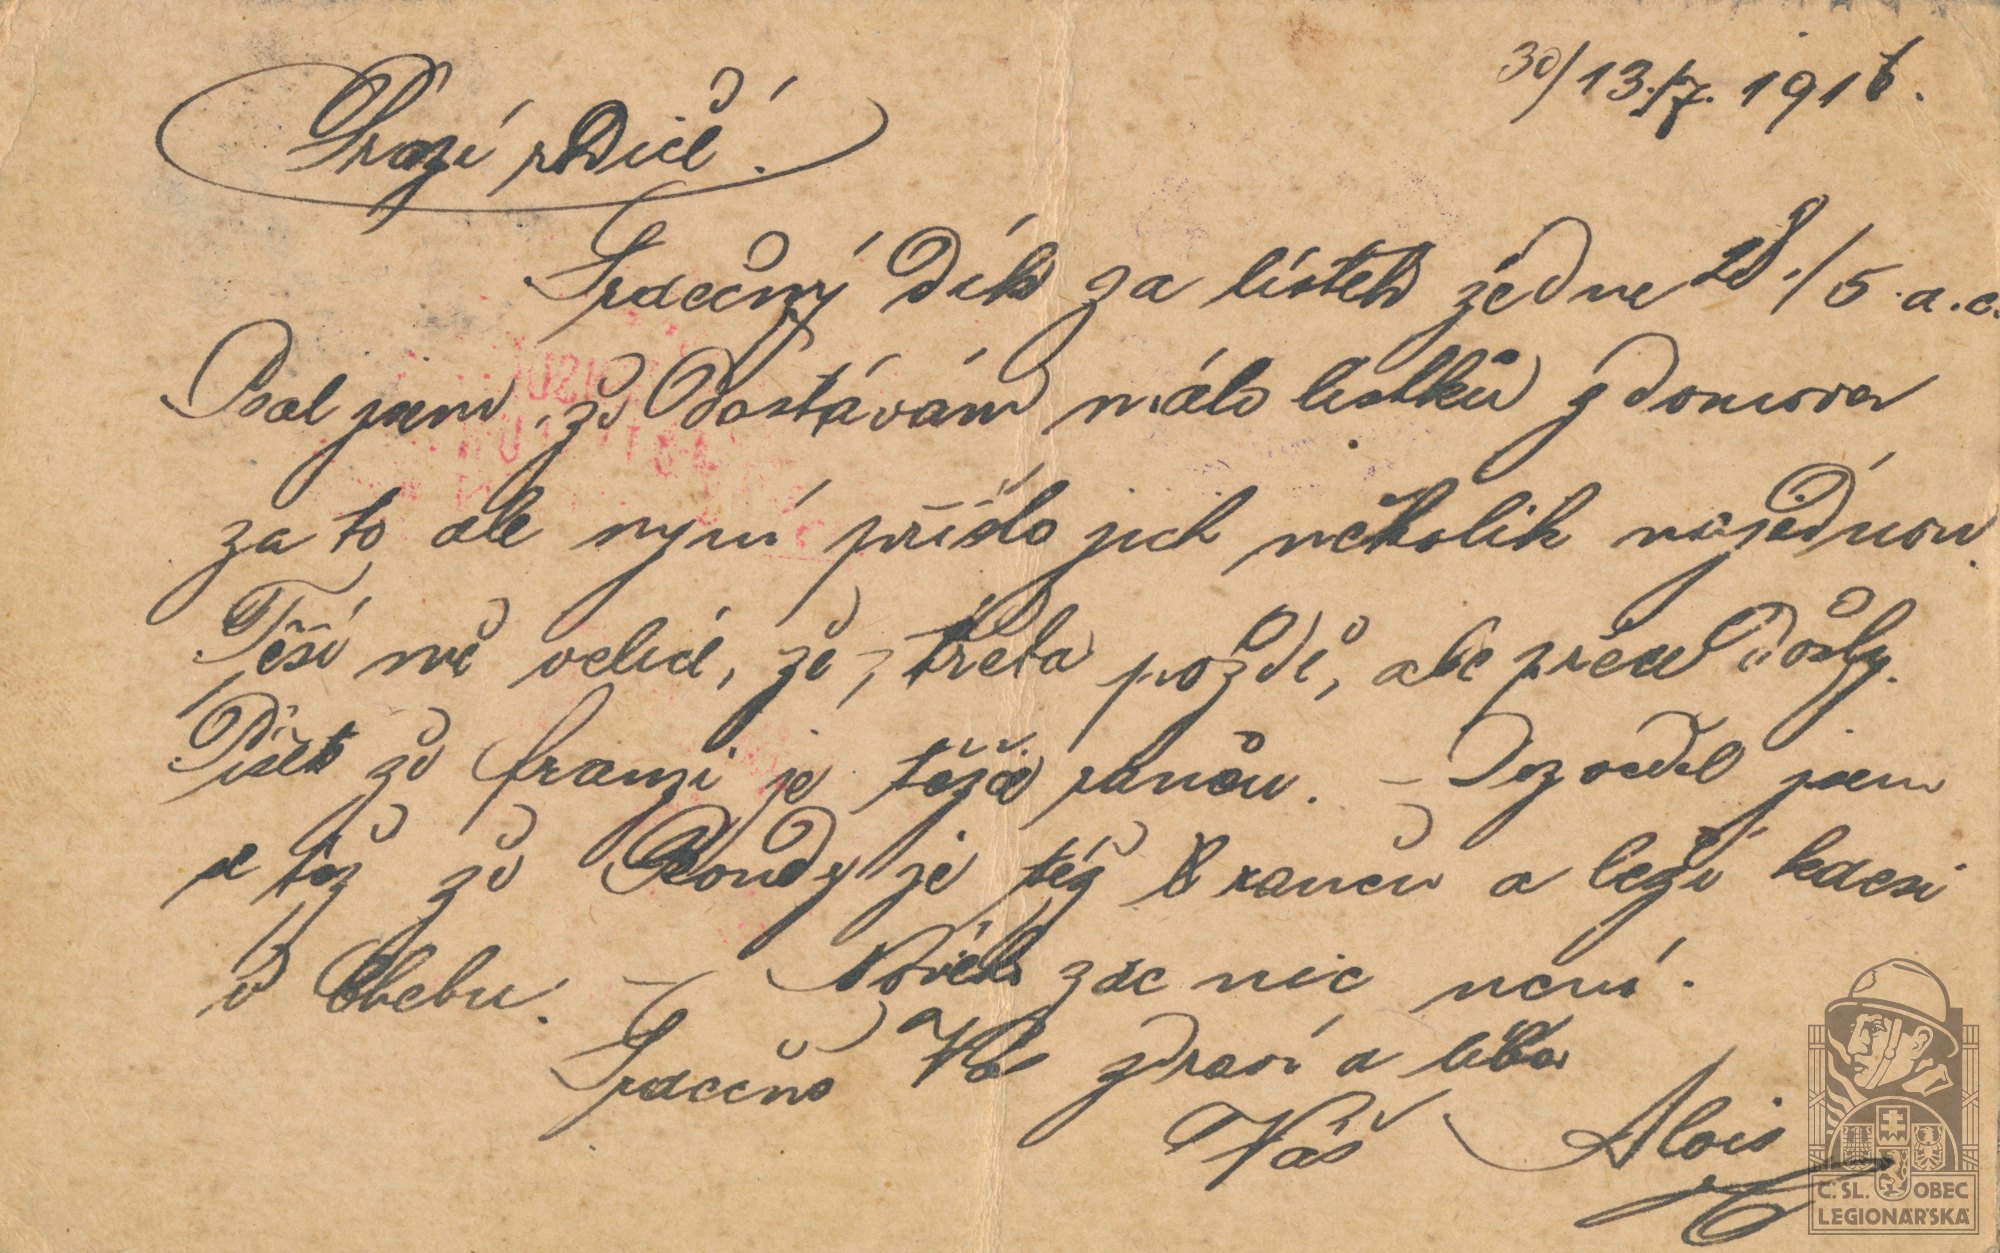 30/13./7. 1916.
Drazí rodiče!
Srdečný dík za lístek ze dne 28./5. a.c.
Psal jsem, že dostávám málo lístků z domova
za to ale nyní přišlo jich několik najednou.
Těší mě velice, že, třeba pozdě, ale přece došly.
Píšete že Franzi je těžce raněn. – Dozvěděl jsem
se též že Rondy je též raněn a leží kdesi
v Chebu. – Nového zde nic není.
Srdečně Vás zdraví a líbá
Váš Alois
Č. SL. OBEC
LEGIONÁŘSKÁ